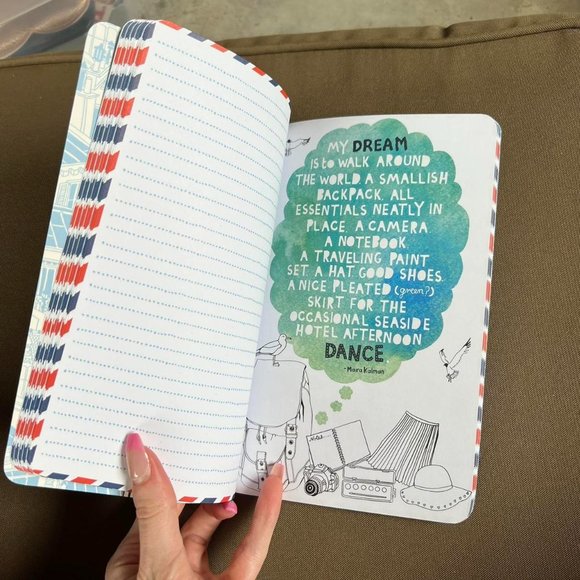 MY DREAM
is to WALK AROUND
THE WORLD A SMALLISH
BACKPACK. ALL
ESSENTIALS NEATLY IN
PLACE. A CAMERA
A NOTEBOOK.
A TRAVELING PAINT
SET. A HAT. GOOD SHOES.
A NICE PLEATED (green?)
SKIRT FOR THE
OCCASIONAL SEASIDE
HOTEL AFTERNOON
DANCE.
-Maira Kalman